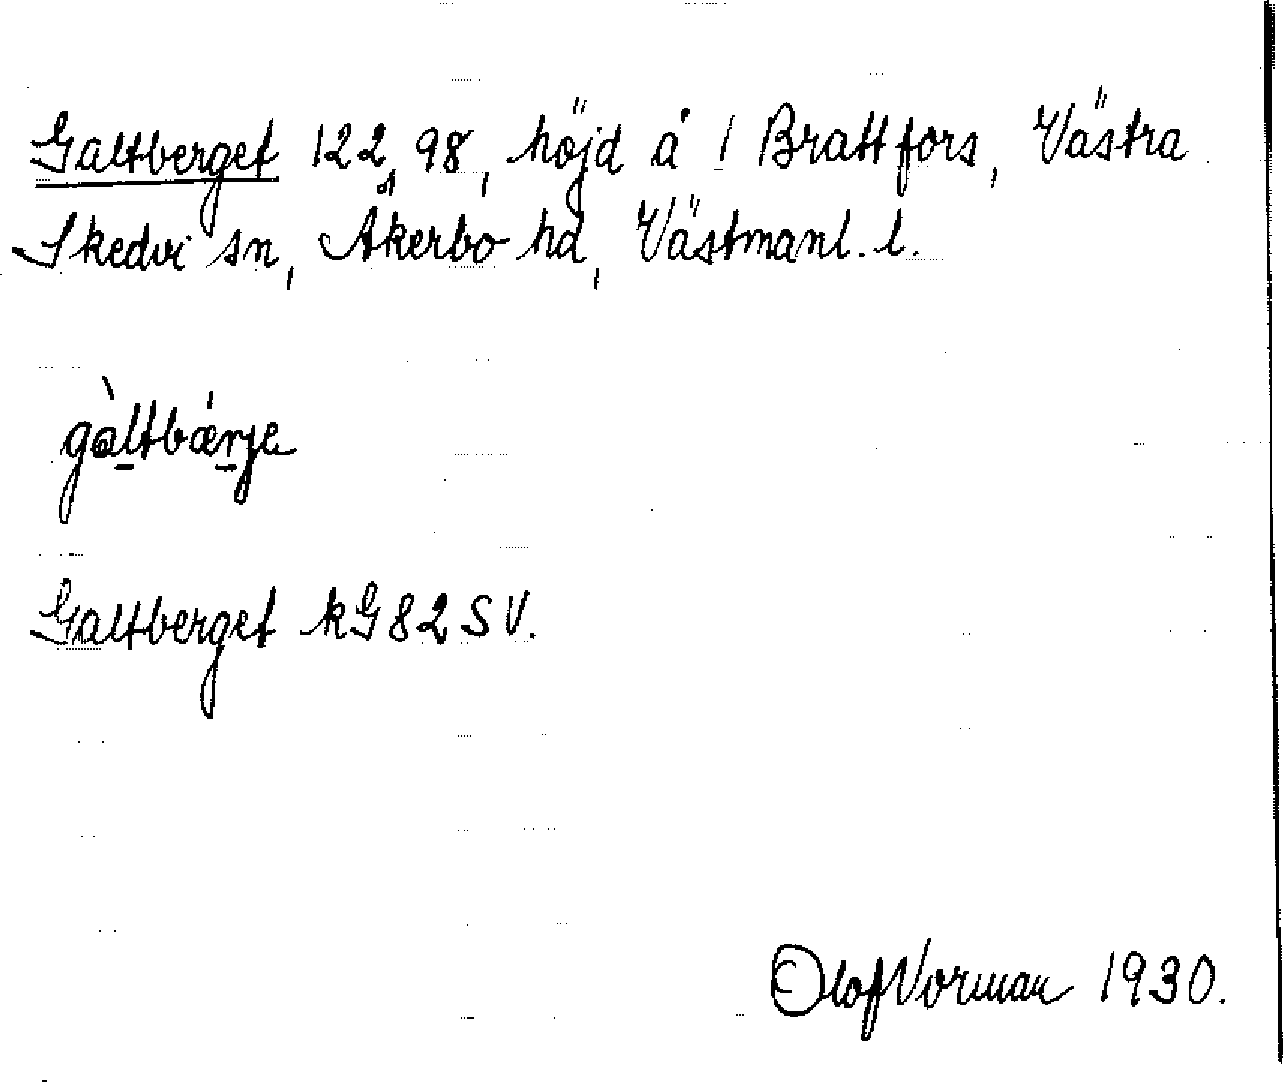 Galtberget 122,98, höjd å 1 Brattfors, Västra
Skedvi sn, Åkerbo hd, Västmanl. l.
gàltbárje
Galtberget kG82SV.
Olof Vorman 1930.